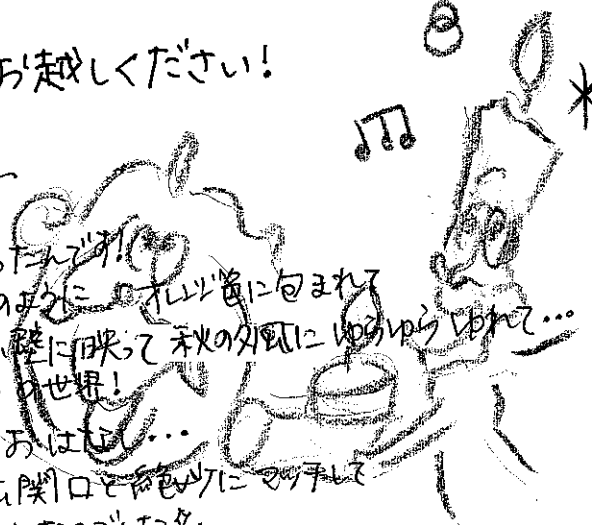 お越しください!
ったんです!
のように オレンジ色に包まれて
壁に映って 秋の夕風に ゆらゆら ゆれて…
の世界!
おはなし…
関口と絶妙に マッチして